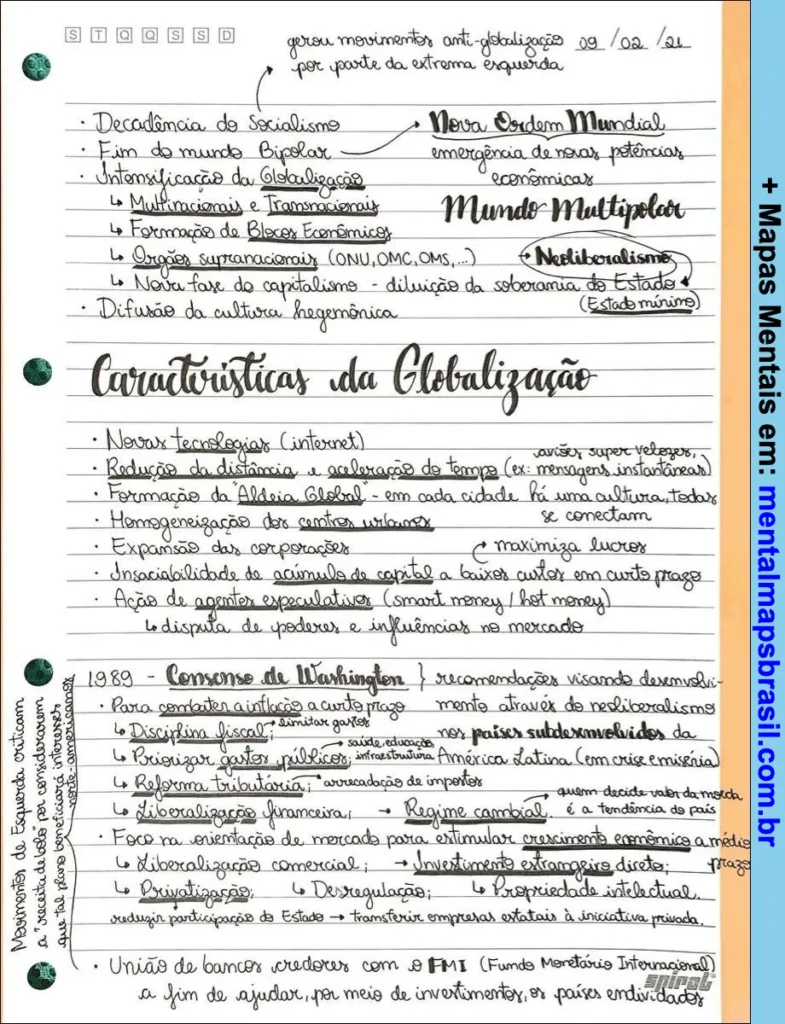 S T Q Q S S D
gerou movimentos anti-globalização 09 / 02 / 21
por parte da extrema esquerda
· Decadência do Socialismo
· Fim do mundo Bipolar → Nova Ordem Mundial
emergência de novas potências
econômicas
· Intensificação da Globalização
↳ Multinacionais e Transnacionais
Mundo Multipolar
↳ Formação de Blocos Econômicos
↳ Orgãos supranacionais (ONU, OMC, OMS, ...)
→ Neoliberalismo
↳ Nova fase do capitalismo - diluição da soberania do Estado
(Estado mínimo)
· Difusão da cultura hegemônica
Características da Globalização
· Novas tecnologias (internet)
aviões super velozes,
· Redução da distância e aceleração do tempo (ex: mensagens instantâneas)
· Formação da "Aldeia Global" - em cada cidade há uma cultura, todas
se conectam
· Homogeneização dos centros urbanos
· Expansão das corporações
→ maximiza lucros
· Insaciabilidade de acúmulo de capital a baixos custos em curto prazo
· Ação de agentes especulativos (smart money / hot money)
↳ disputa de poderes e influências no mercado
1989 - Consenso de Washington } recomendações visando desenvolvi-
mento através do neoliberalismo
nos países subdesenvolvidos da
América Latina (em crise e miséria)
· Para combater a inflação a curto prazo
↳ Disciplina fiscal; → limitar gastos
↳ Priorizar gastos públicos; → saúde, educação,
infraestrutura
↳ Reforma tributária; → arrecadação de impostos
↳ Liberalização financeira; → Regime cambial.
quem decide valor da moeda
é a tendência do país
· Foco na orientação de mercado para estimular crescimento econômico a médio
prazo
↳ Liberalização comercial; → Investimento estrangeiro direto;
↳ Privatização; ↳ Desregulação; ↳ Propriedade intelectual.
reduzir participação do Estado → transferir empresas estatais à iniciativa privada.
· União de bancos credores com o FMI (Fundo Monetário Internacional)
a fim de ajudar, por meio de investimentos, os países endividados
spiral
Movimentos de Esquerda criticam
a "receita de bolo" por considerarem
que tal plano beneficiará interesses
norte-americanos
+ Mapas Mentais em: mentalmapsbrasil.com.br